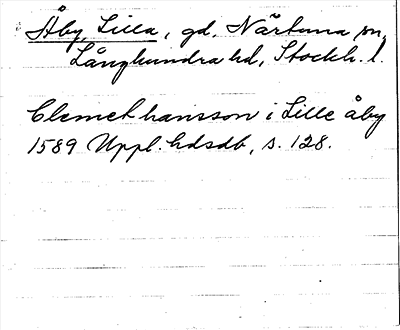 Åby, Lilla, gd. Närtuna sn,
Långhundra hd, Stockh. l.
Clemet hansson i Lille åby
1589 Uppl. hdsdb, s. 128.